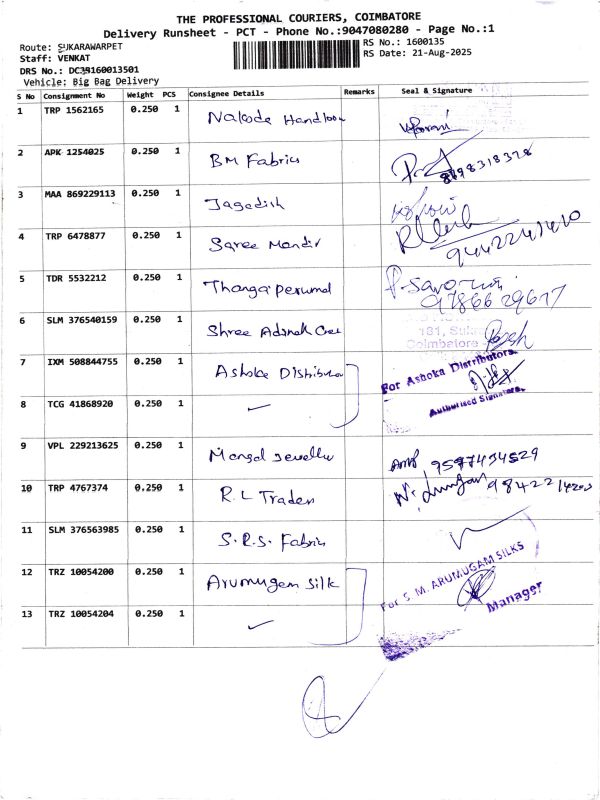 THE PROFESSIONAL COURIERS, COIMBATORE
Delivery Runsheet - PCT - Phone No.:9047080280 - Page No.:1
Route: SUKARAWARPET
RS No.: 1600135
Staff: VENKAT
RS Date: 21-Aug-2025
DRS No.: DC35160013501
Vehicle: Big Bag Delivery
S No Consignment No Weight PCS Consignee Details Remarks Seal & Signature
1 TRP 1562165 0.250 1 Nakode Handloom
2 APK 1254025 0.250 1 BM Fabrics 8198318328
3 MAA 869229113 0.250 1 Jagadish
4 TRP 6478877 0.250 1 Saree Mandir 9442241410
5 TDR 5532212 0.250 1 Thangaperumal P. Saravanan 9786629617
6 SLM 376540159 0.250 1 Shree Adinath
131,
Coimbatore
7 IXM 508844755 0.250 1 Ashoka Distributor For Ashoka Distributors
8 TCG 41868920 0.250 1 ✓ Authorised Signature
9 VPL 229213625 0.250 1 Mangal Jewellu 9597434529
10 TRP 4767374 0.250 1 R.L Traders
11 SLM 376563985 0.250 1 S.R.S. Fabrics
12 TRZ 10054200 0.250 1 Arumugam Silk For S. M. ARUMUGAM SILKS
13 TRZ 10054204 0.250 1 ✓ Manager